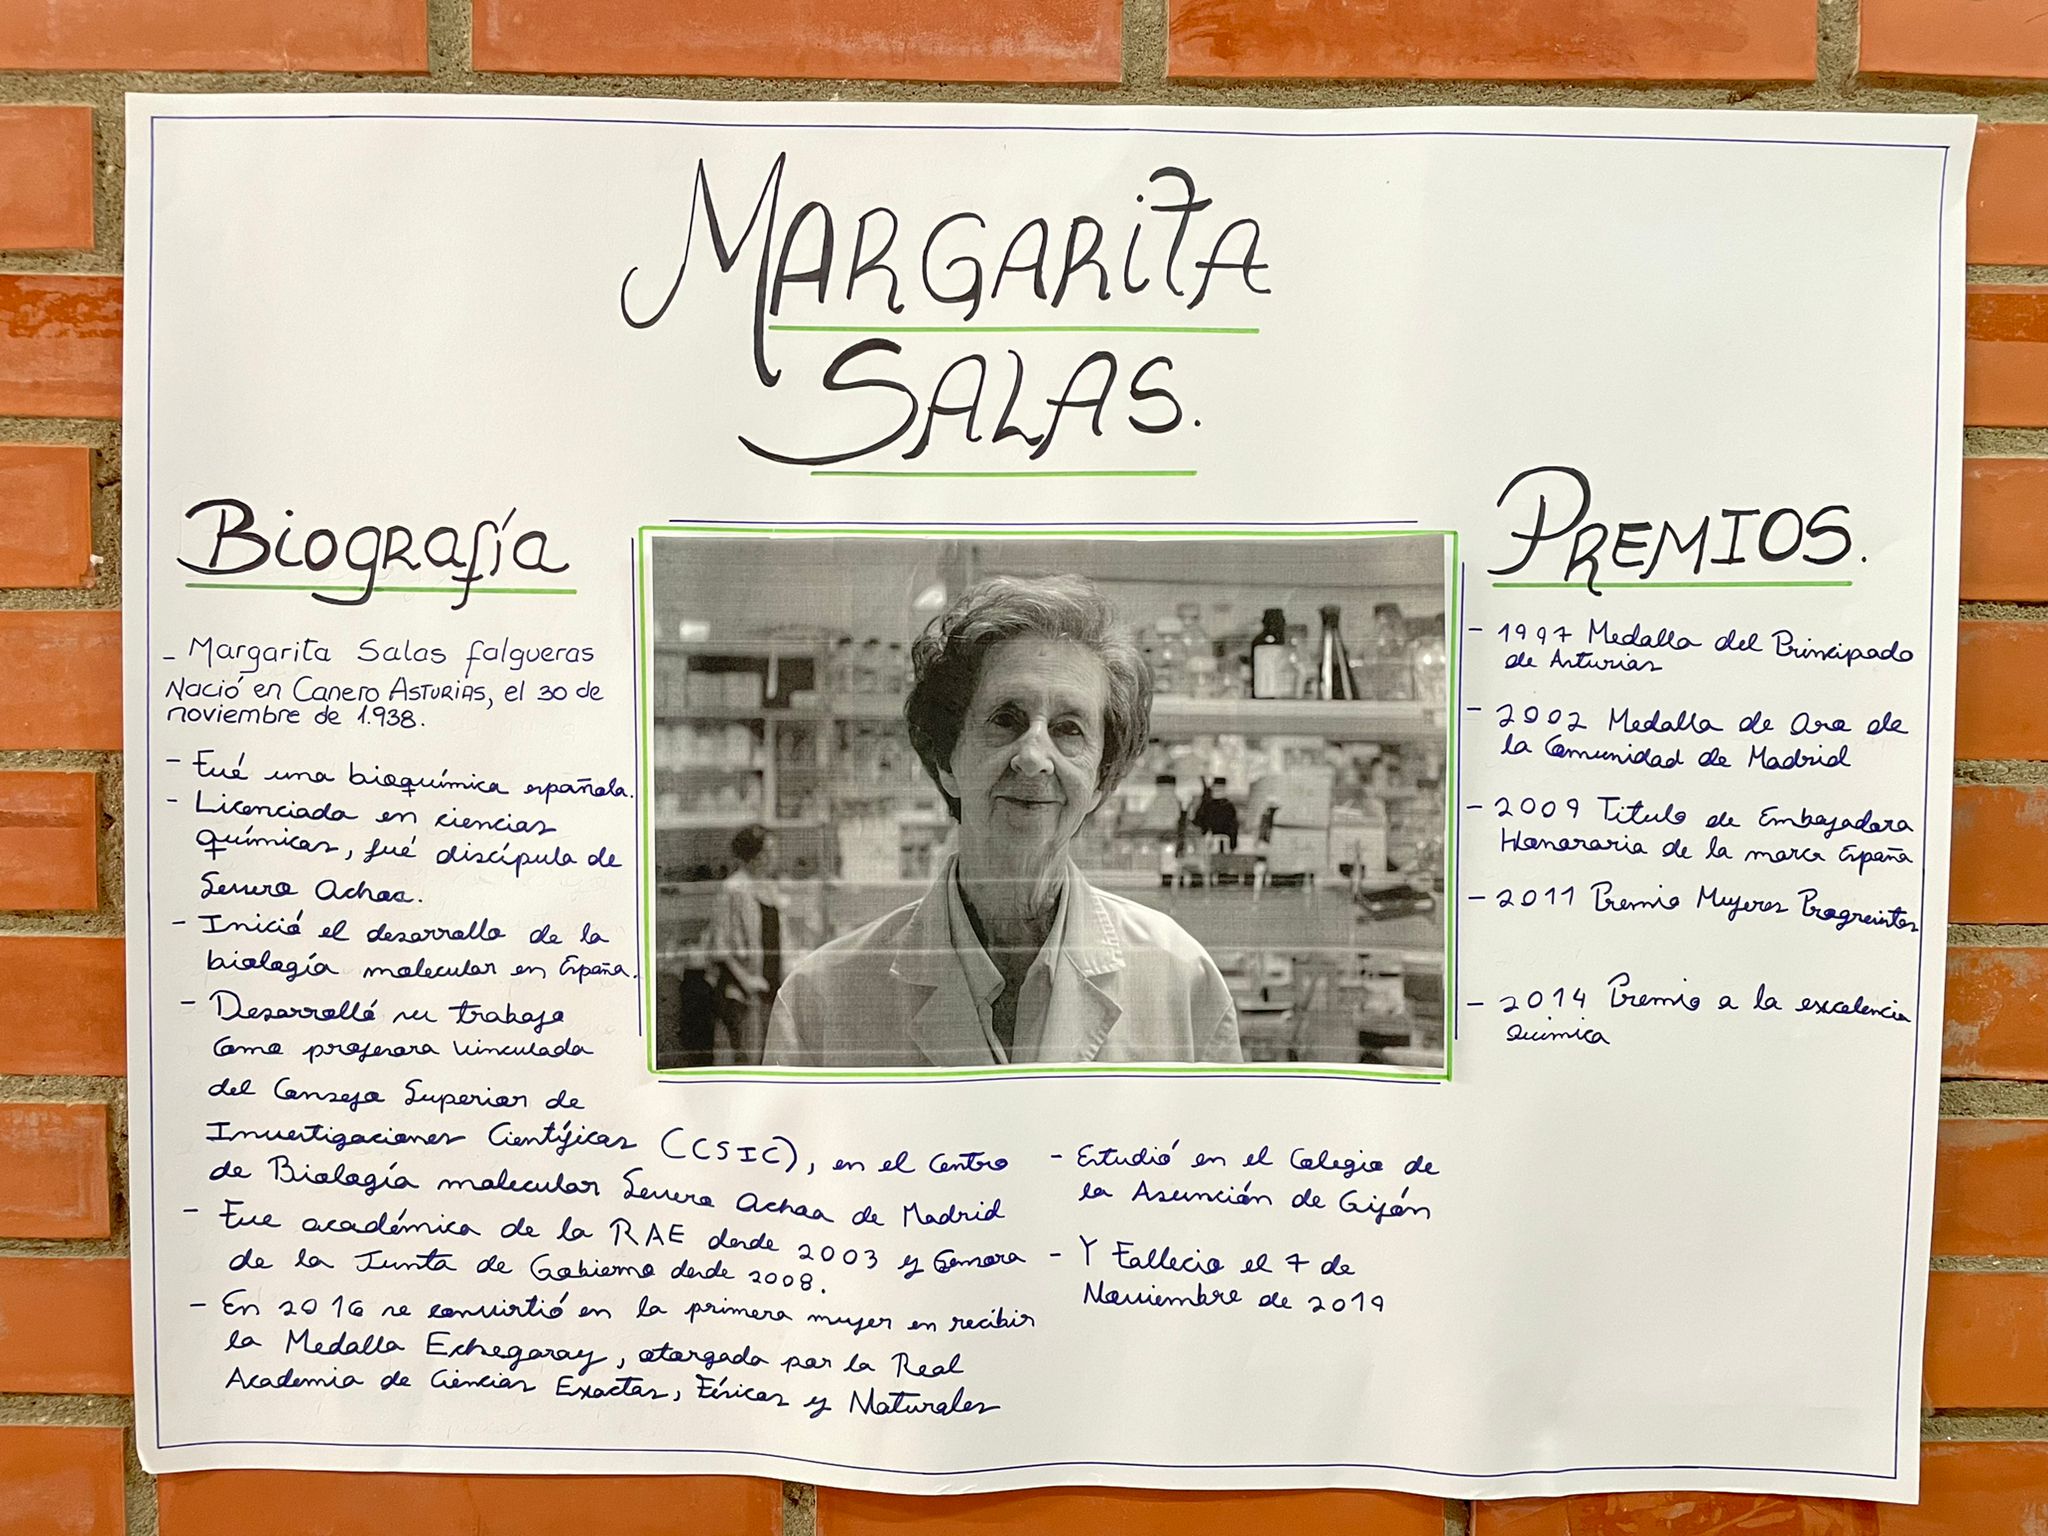 MARGARiTA
SALAS.
Biografía
- Margarita Salas falgueras
Nació en Canero ASTURIAS, el 30 de
noviembre de 1.938.
- Fué una bioquímica española.
- Licenciada en ciencias
químicas, fué discípula de
Severo Ochoa.
- Inició el desarrollo de la
biología molecular en España.
- Desarrolló su trabajo
como profesora vinculada
del Consejo Superior de
Investigaciones Científicas (CSIC), en el Centro
de Biología molecular Severo Ochoa de Madrid
- Fue académica de la RAE desde 2003 y Censora
de la Junta de Gobierno desde 2008.
- En 2016 se convirtió en la primera mujer en recibir
la Medalla Echegaray, otorgada por la Real
Academia de Ciencias Exactas, Físicas y Naturales
- Estudió en el Colegio de
la Asunción de Gijón
- Y Fallecio el 7 de
Noviembre de 2019
PREMIOS.
- 1997 Medalla del Principado
de Asturias
- 2002 Medalla de Oro de
la Comunidad de Madrid
- 2009 Titulo de Embajadora
Honoraria de la marca España
- 2011 Premio Mujeres Progresistas
- 2014 Premio a la excelencia
Quimica